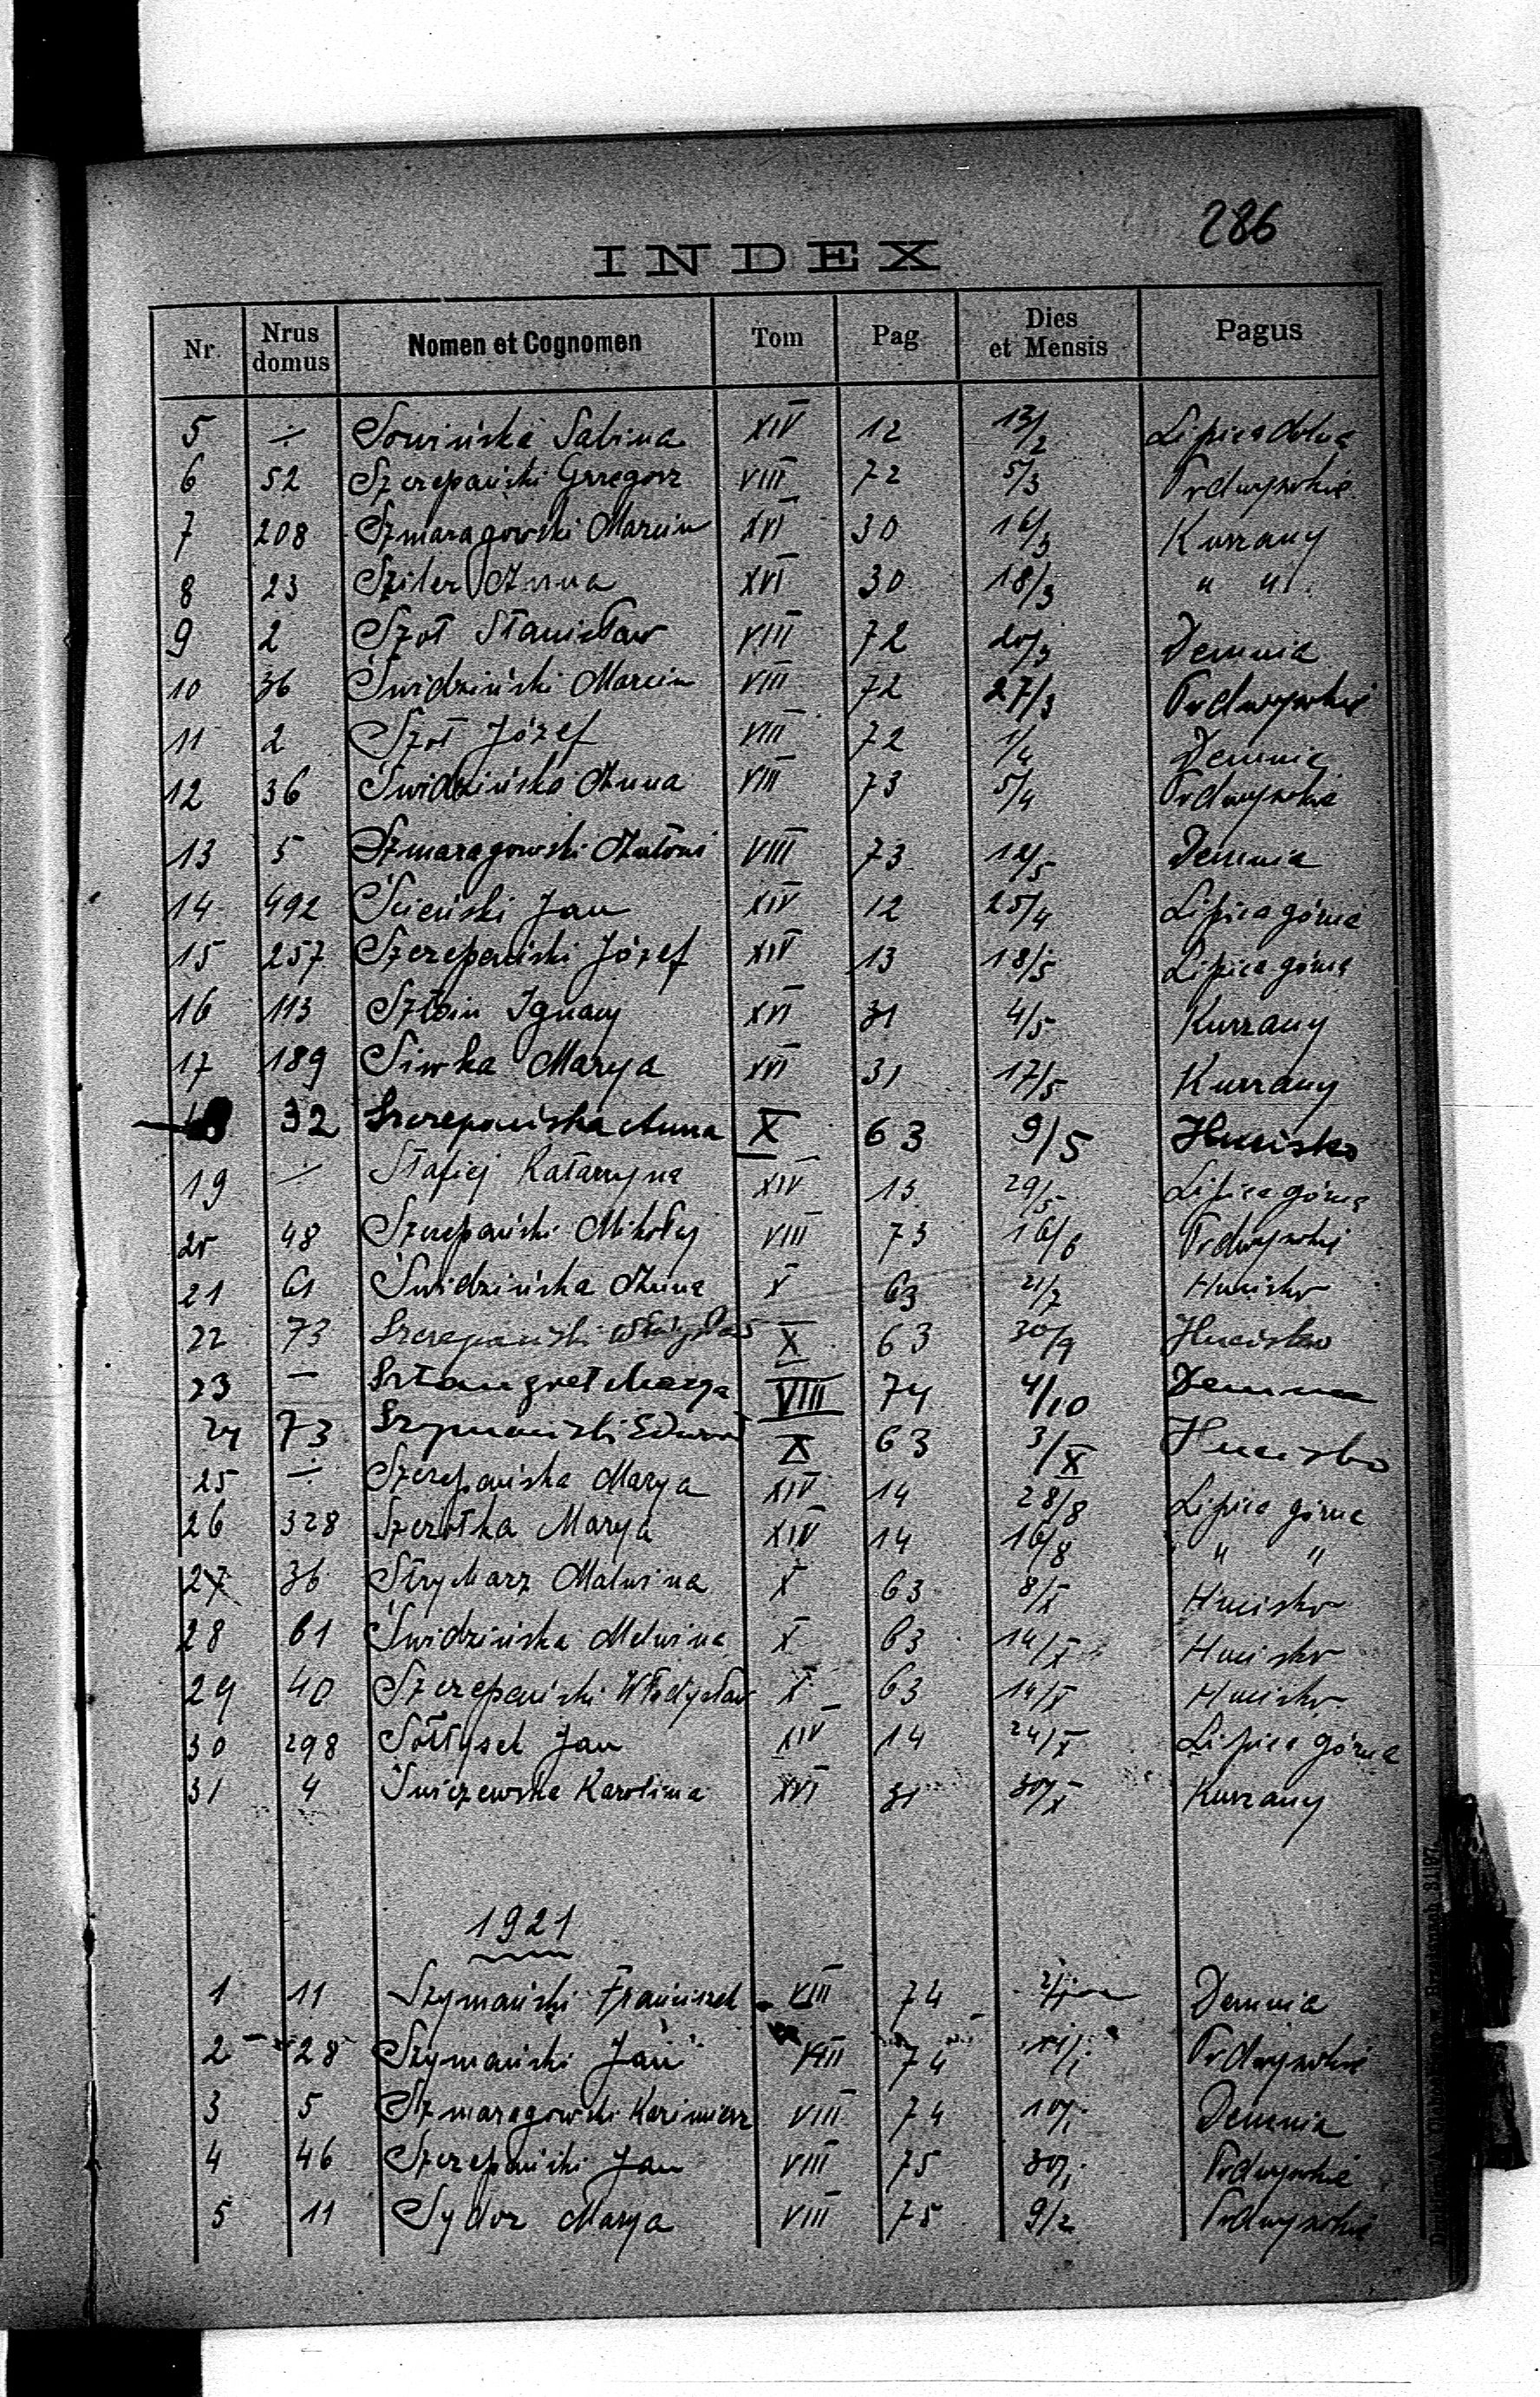 286
INDEX
Nr. Nrus domus Nomen et Cognomen Tom Pag. Dies et Mensis Pagus
5 ÷ Sowińska Sabina XIV 12 13/2 Lipica dolna
6 52 Szczepański Grzegorz VIII 72 5/3 Podwysokie
7 208 Szmaragowski Marcin XVI 30 16/3 Kurzany
8 23 Sziler Anna XVI 30 18/3 " "
9 2 Szot Stanisław VIII 72 20/3 Demnia
10 36 Świdziński Marcin VIII 72 27/3 Podwysokie
11 2 Szot Józef VIII 72 1/4 Demnia
12 36 Świdzińska Anna VIII 73 5/4 Podwysokie
13 5 Szmaragowski Antoni VIII 73 /5 Demnia
14 492 Ścieński Jan XIV 12 25/4 Lipica górna
15 257 Szczepański Józef XIV 13 18/5 Lipica górna
16 113 Ignacy XVI 31 4/5 Kurzany
17 189 Siwka Marya XVI 31 17/5 Kurzany
18 32 Szczepańska Anna X 63 9/5 Hucisko
19 — Stafiej Katarzyna XIV 13 29/5 Lipica górna
20 48 Szczepański Mikołaj VIII 73 16/6 Podwysokie
21 61 Świdzińska Anna X 63 21/7 Hucisko
22 73 Szczepański X 63 30/9 Hucisko
23 — Sztangret Marya VIII 74 4/10 Demnia
24 73 Szymański Edward X 63 3/X Hucisko
25 ÷ Szczepańska Marya XIV 14 28/8 Lipica górna
26 328 Szczotka Marya XIV 14 16/8 " "
27 36 Strycharz Malwina X 63 8/X Hucisko
28 61 Świdzińska Malwina X 63 14/X Hucisko
29 40 Szczepański Władysław X 63 14/X Hucisko
30 298 Sołtysek Jan XIV 14 24/X Lipica górna
31 4 Świczewska Karolina XVI 31 30/X Kurzany
1921
1 11 Szymański Franciszek VIII 74 2/1 Demnia
2 28 Szymański Jan VIII 74 Podwysokie
3 5 Szmaragowski Kazimierz VIII 74 10/1 Demnia
4 46 Szczepański Jan VIII 75 30/1 Podwysokie
5 11 Sydor Marya VIII 75 9/2 Podwysokie